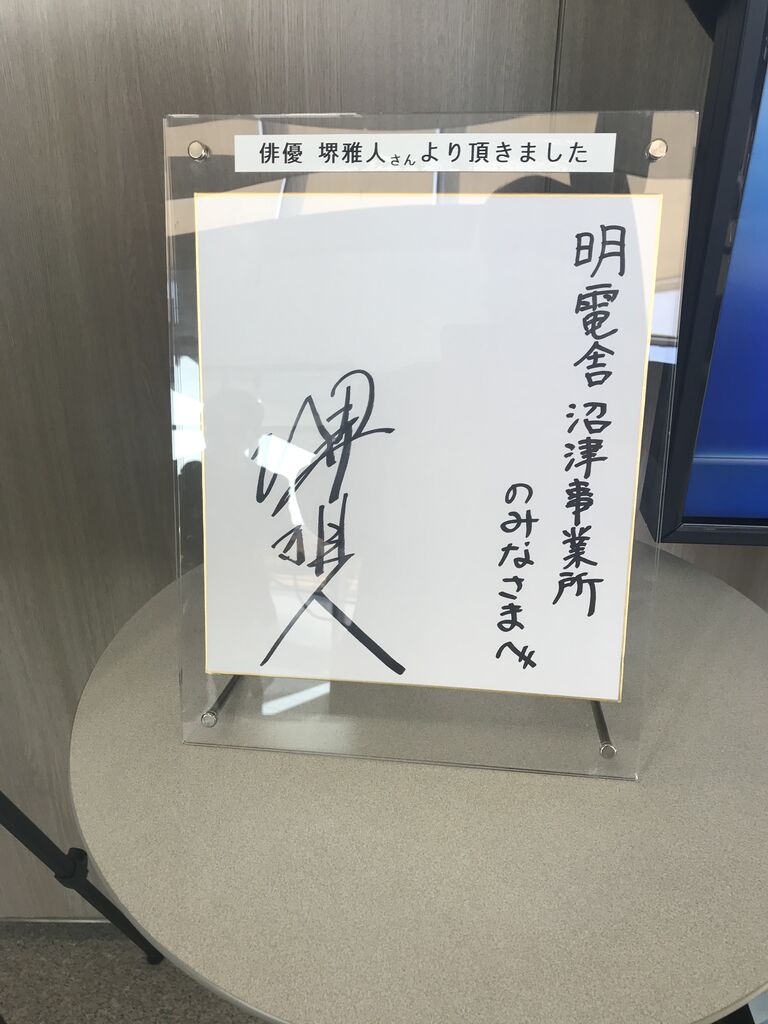 俳優 堺雅人さんより頂きました
明電舎 沼津事業所
のみなさまへ
堺雅人